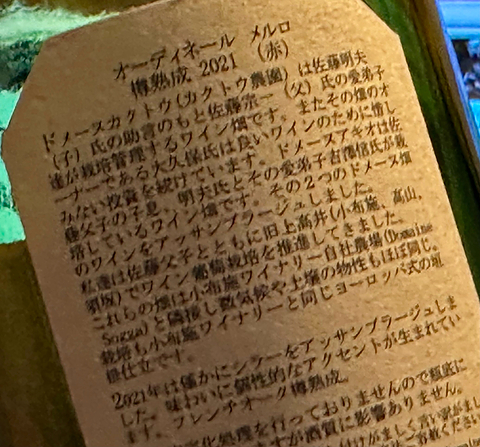 オーディネール メルロ
樽熟成 2021 (赤)
ドメースカクトウ(カクトウ農園)は佐藤明夫
(子)氏の助言のもと佐藤宗一(父)氏の愛弟子
達が栽培管理するワイン畑です。またその畑のオ
ーナーである大久保氏は良いワインのために惜し
みない投資を続けています。ドメースアキオは佐
藤父子の子息、明夫氏とその愛弟子古澤信氏が栽
培しているワイン畑です。その2つのドメース畑
のワインをアッサンブラージュしました。
私達は佐藤父子とともに旧上高井(小布施、高山、
須坂)でワイン葡萄栽培を推進してきました。
これらの畑は小布施ワイナリー自社農場(Domaine
Sogga)と隣接し数気候や土壌の物性もほぼ同じ。
栽培も小布施ワイナリーと同じヨーロッパ式の垣
根仕立です。
2021年は僅かにシラーをアッサンブラージュしま
した。味わいに個性的なアクセントが生まれてい
ます。フレンチオーク樽熟成。
化処理を行っておりませんので瓶底に
すが酒質に影響ありません。